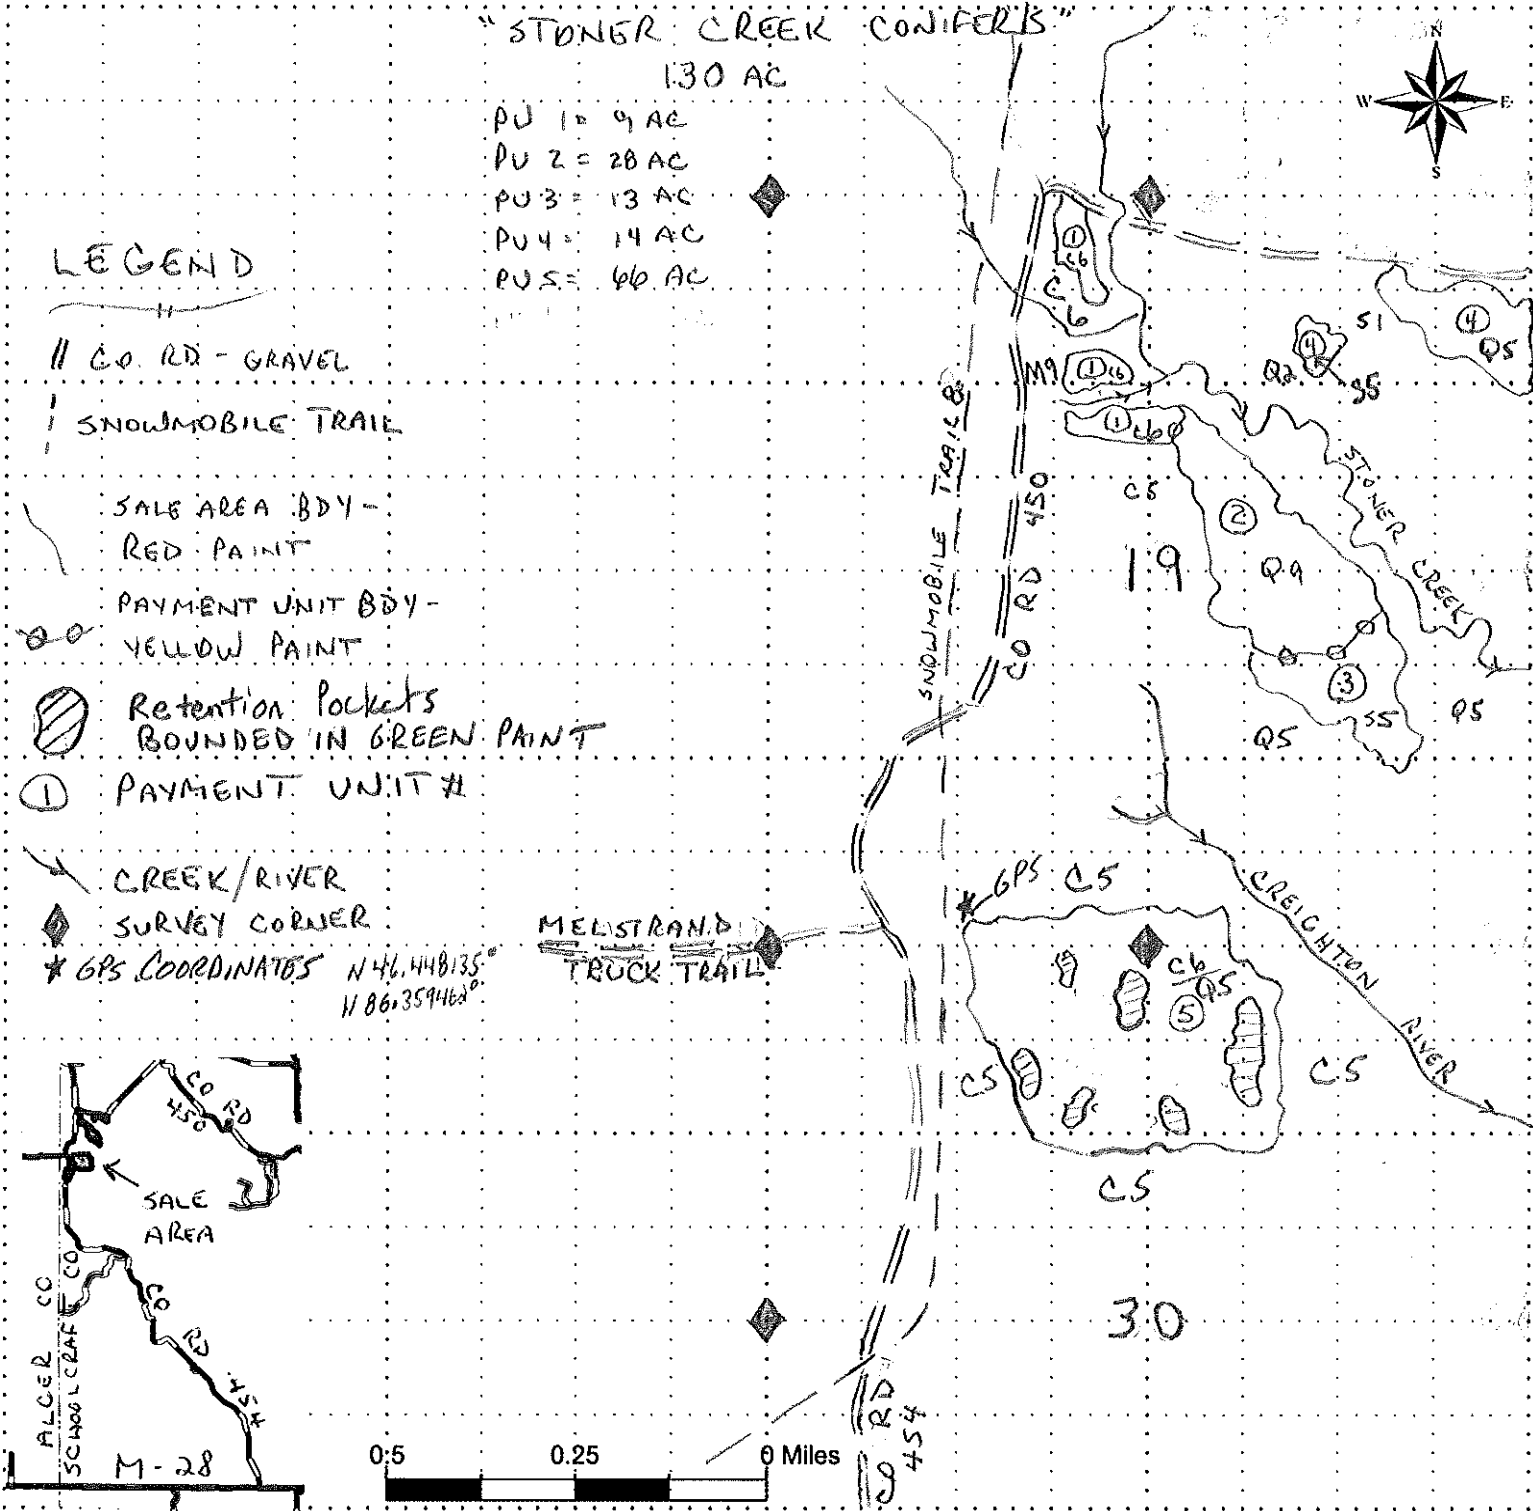 "STONER CREEK CONIFERS"
130 AC
PU 1 = 9 AC
PU 2 = 28 AC
PU 3 = 13 AC
PU 4 = 14 AC
PU 5 = 66 AC
N
W
E
S
LEGEND
CO. RD - GRAVEL
SNOWMOBILE TRAIL
SALE AREA BDY -
RED PAINT
PAYMENT UNIT BDY -
YELLOW PAINT
Retention Pockets
BOUNDED IN GREEN PAINT
1 PAYMENT UNIT #
CREEK/RIVER
SURVEY CORNER
* GPS COORDINATES N 46.448135°
N 86.359462°
1
C6
C
6
M9
1 C6
1 C6
S1
4
Q5
4
Q2
S5
SNOWMOBILE TRAIL 8
CO RD 450
C5
2
19
Q9
STONER CREEK
3
S5
Q5
Q5
GPS
C5
CREIGHTON RIVER
MELSTRAND
TRUCK TRAIL
C6/Q5
5
C5
C5
C5
30
RD
454
CO RD
450
SALE
AREA
CO RD 454
ALGER CO
SCHOOLCRAFT CO
M-28
0.5 0.25 0 Miles